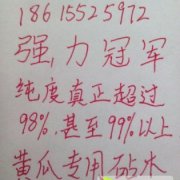 18615525972
强力冠军
纯度真正超过
98%,甚至99%以上
黄瓜专用矿水